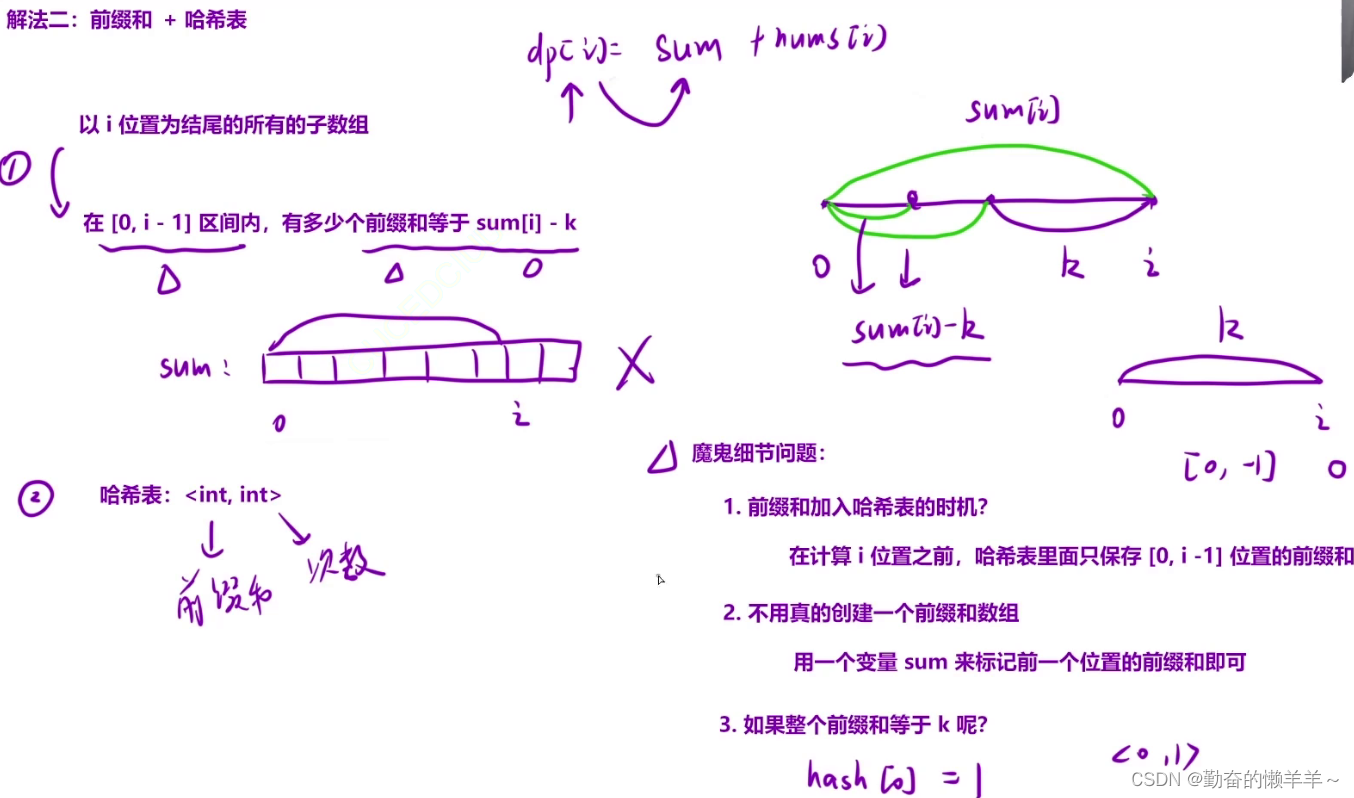 解法二：前缀和 + 哈希表
dp[i]= sum +nums[i]
以 i 位置为结尾的所有的子数组
①
在 [0, i - 1] 区间内，有多少个前缀和等于 sum[i] - k
sum[i]
0 k i
sum[i]-k
sum：
0 i
X
k
0 i
[0, -1] 0
② 哈希表：<int, int>
前缀和 次数
魔鬼细节问题：
1. 前缀和加入哈希表的时机？
在计算 i 位置之前，哈希表里面只保存 [0, i -1] 位置的前缀和
2. 不用真的创建一个前缀和数组
用一个变量 sum 来标记前一个位置的前缀和即可
3. 如果整个前缀和等于 k 呢？
hash[0] = 1 <0,1>
CSDN @勤奋的懒羊羊～